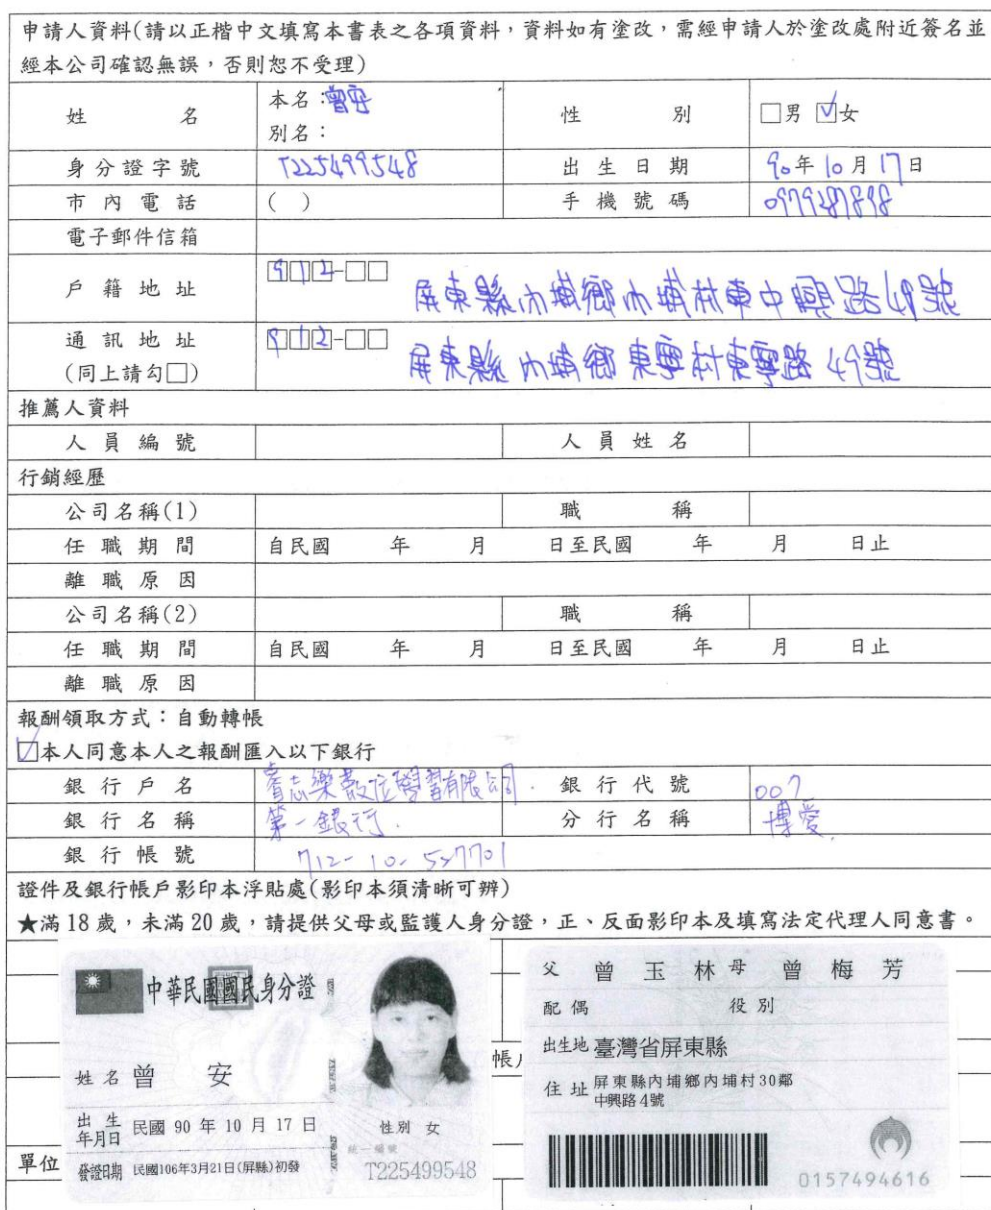 申請人資料(請以正楷中文填寫本書表之各項資料，資料如有塗改，需經申請人於塗改處附近簽名並
經本公司確認無誤，否則恕不受理)
姓 名 本名：曾安 性 別 □男 ☑女
別名：
身分證字號 T225499548 出生日期 90年10月17日
市內電話 ( ) 手機號碼 0979287898
電子郵件信箱
戶籍地址 912-□□ 屏東縣內埔鄉內埔村東中興路49號
通訊地址 912-□□ 屏東縣內埔鄉東寧村東寧路49號
(同上請勾□)
推薦人資料
人員編號 人員姓名
行銷經歷
公司名稱(1) 職 稱
任職期間 自民國 年 月 日至民國 年 月 日止
離職原因
公司名稱(2) 職 稱
任職期間 自民國 年 月 日至民國 年 月 日止
離職原因
報酬領取方式：自動轉帳
☑本人同意本人之報酬匯入以下銀行
銀行戶名 睿志樂數位學習有限公司. 銀行代號 007
銀行名稱 第一銀行. 分行名稱 博愛
銀行帳號 712-10-527701
證件及銀行帳戶影印本浮貼處(影印本須清晰可辨)
★滿18歲，未滿20歲，請提供父母或監護人身分證，正、反面影印本及填寫法定代理人同意書。
中華民國國民身分證
姓名 曾 安
出生年月日 民國 90 年 10 月 17 日 性別 女
統一編號
發證日期 民國106年3月21日(屏縣)初發 T225499548
父 曾玉林 母 曾梅芳
配偶 役別
出生地 臺灣省屏東縣
住址 屏東縣內埔鄉內埔村30鄰
中興路4號
0157494616
帳戶
單位